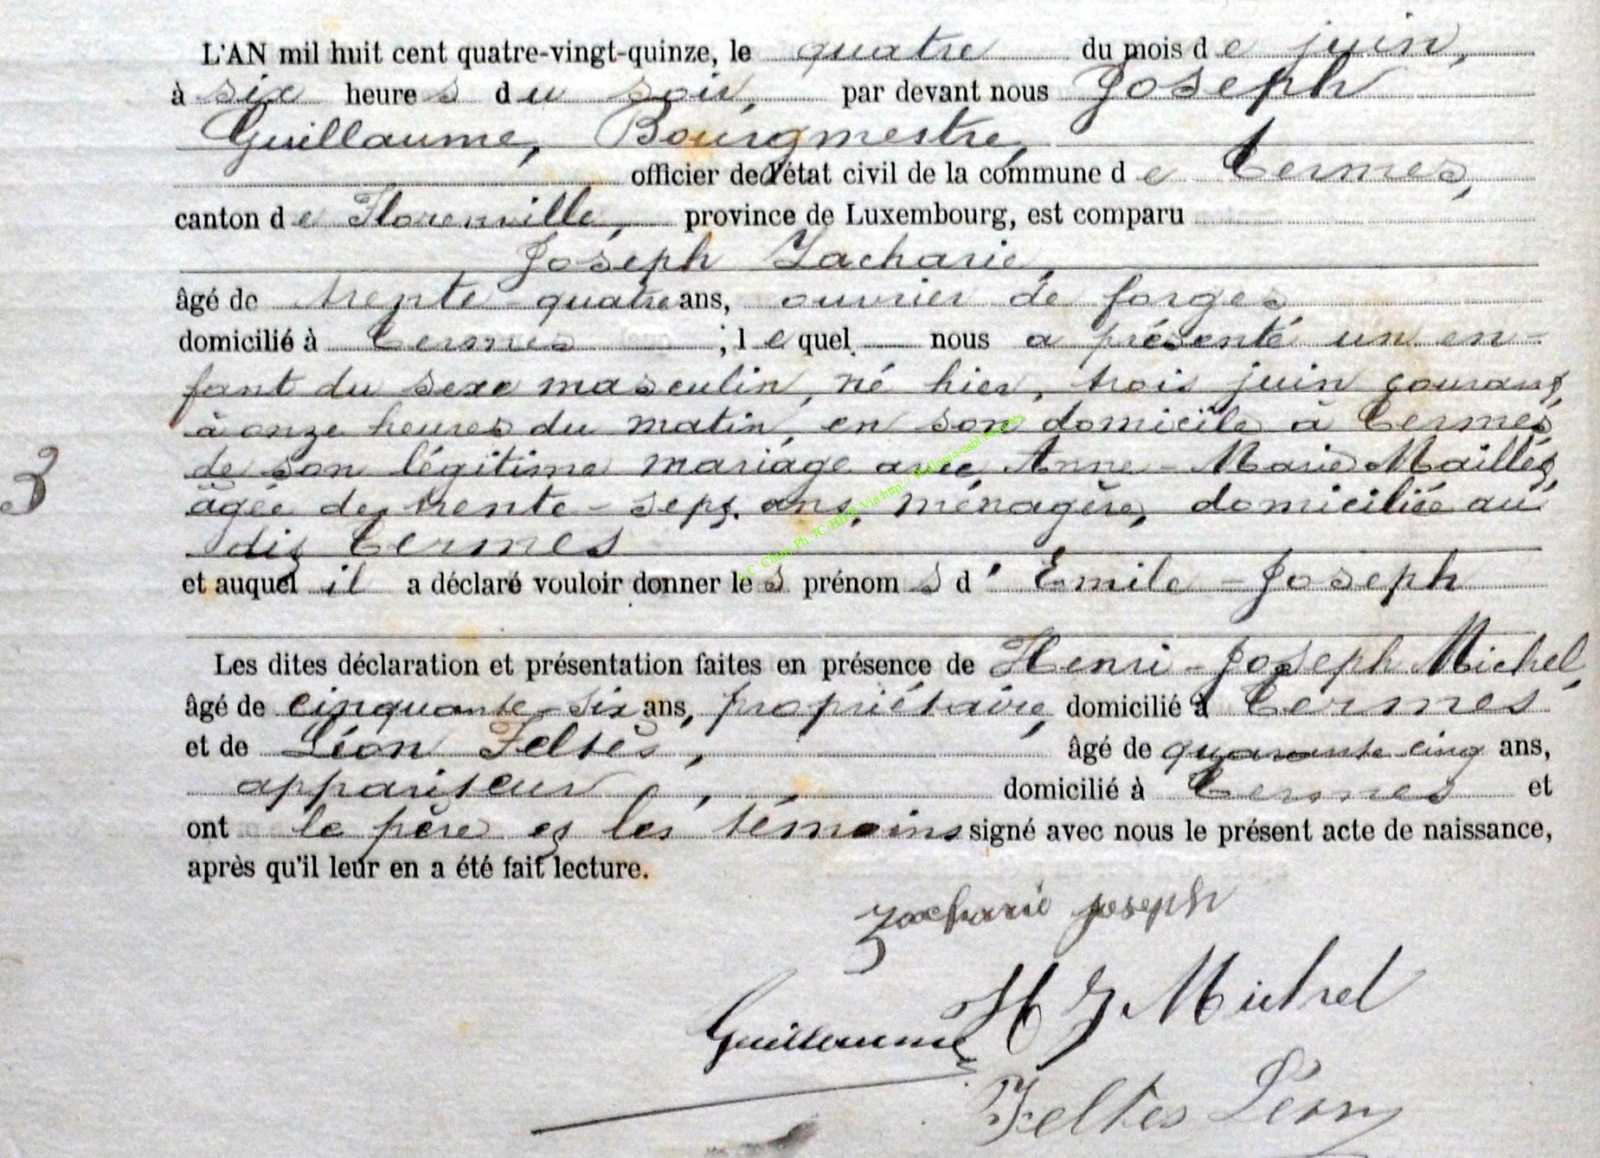 L'AN mil huit cent quatre-vingt-quinze, le quatre du mois de juin,
à six heures du soir, par devant nous Joseph
Guillaume, Bourgmestre,
officier de l'état civil de la commune de Termes,
canton de Florenville, province de Luxembourg, est comparu
Joseph Zacharie,
âgé de trente-quatre ans, ouvrier de forges
domicilié à Termes ; lequel nous a présenté un en-
fant du sexe masculin, né hier, trois juin courant,
à onze heures du matin, en son domicile à Termes,
de son légitime mariage avec Anne-Marie Maillé,
âgée de trente-sept ans, ménagère, domiciliée au
dit Termes
et auquel il a déclaré vouloir donner les prénoms d' Emile-Joseph
3
Les dites déclaration et présentation faites en présence de Henri-Joseph Michel,
âgé de cinquante-six ans, propriétaire, domicilié à Termes
et de Léon Feltès, âgé de quarante cinq ans,
appariteur, domicilié à Termes et
ont le père et les témoins signé avec nous le présent acte de naissance,
après qu'il leur en a été fait lecture.
Zacharie Joseph
H J Michel
Guillaume
Feltes Léon